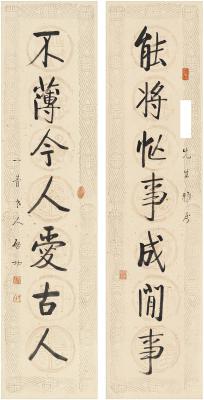 能将忙事成閒事
先生雅属
不薄今人愛古人